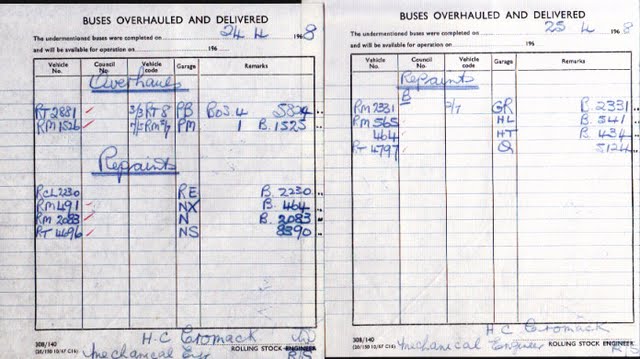 BUSES OVERHAULED AND DELIVERED
The undermentioned buses were completed on 24 4 1968
and will be available for operation on 196
Vehicle No. Council No. Vehicle code Garage Remarks
Overhauls
RT 2881 3/3 RT8 PB Bo3.4 5824
RM 1526 7/5 RM 5/7 PM 1 B. 1525
Repaints
RCL 2230 RE B. 2230
RM 491 NX B. 464
RM 2083 N B. 2083
RT 4696 NS 8390
308/140
H.C Cromack
ROLLING STOCK ENGINEER
Mechanical Eng
BUSES OVERHAULED AND DELIVERED
The undermentioned buses were completed on 25 4 1968
and will be available for operation on 196
Vehicle No. Council No. Vehicle code Garage Remarks
Repaints
RM 2331 B 2/7 GR B. 2331
RM 565 HL B. 541
464 HT B. 434
RT 4797 Q 5124
308/140
H C Cromack
ROLLING STOCK ENGINEER
Mechanical Engineer